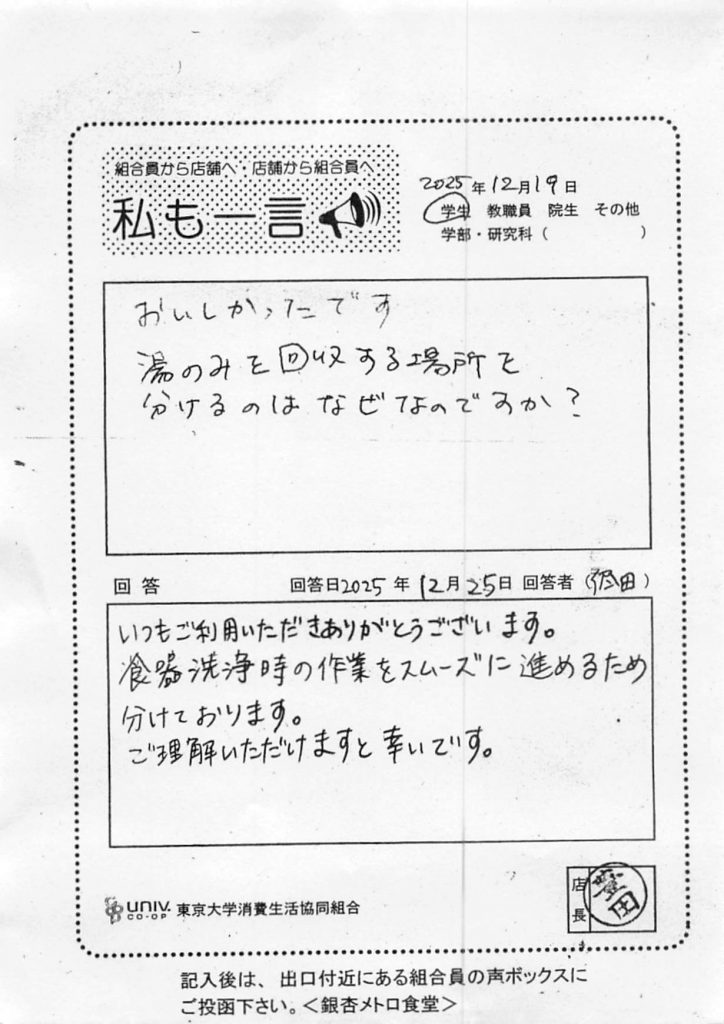 組合員から店舗へ・店舗から組合員へ
私も一言
2025年12月19日
学生 教職員 院生 その他
学部・研究科（ ）
おいしかったです
湯のみを回収する場所を
分けるのはなぜなのですか？
回答 回答日2025年12月25日 回答者（ 田）
いつもご利用いただきありがとうございます。
食器洗浄時の作業をスムーズに進めるため
分けております。
ご理解いただけますと幸いです。
店長
田
UNIV. CO-OP 東京大学消費生活協同組合
記入後は、出口付近にある組合員の声ボックスに
ご投函下さい。＜銀杏メトロ食堂＞